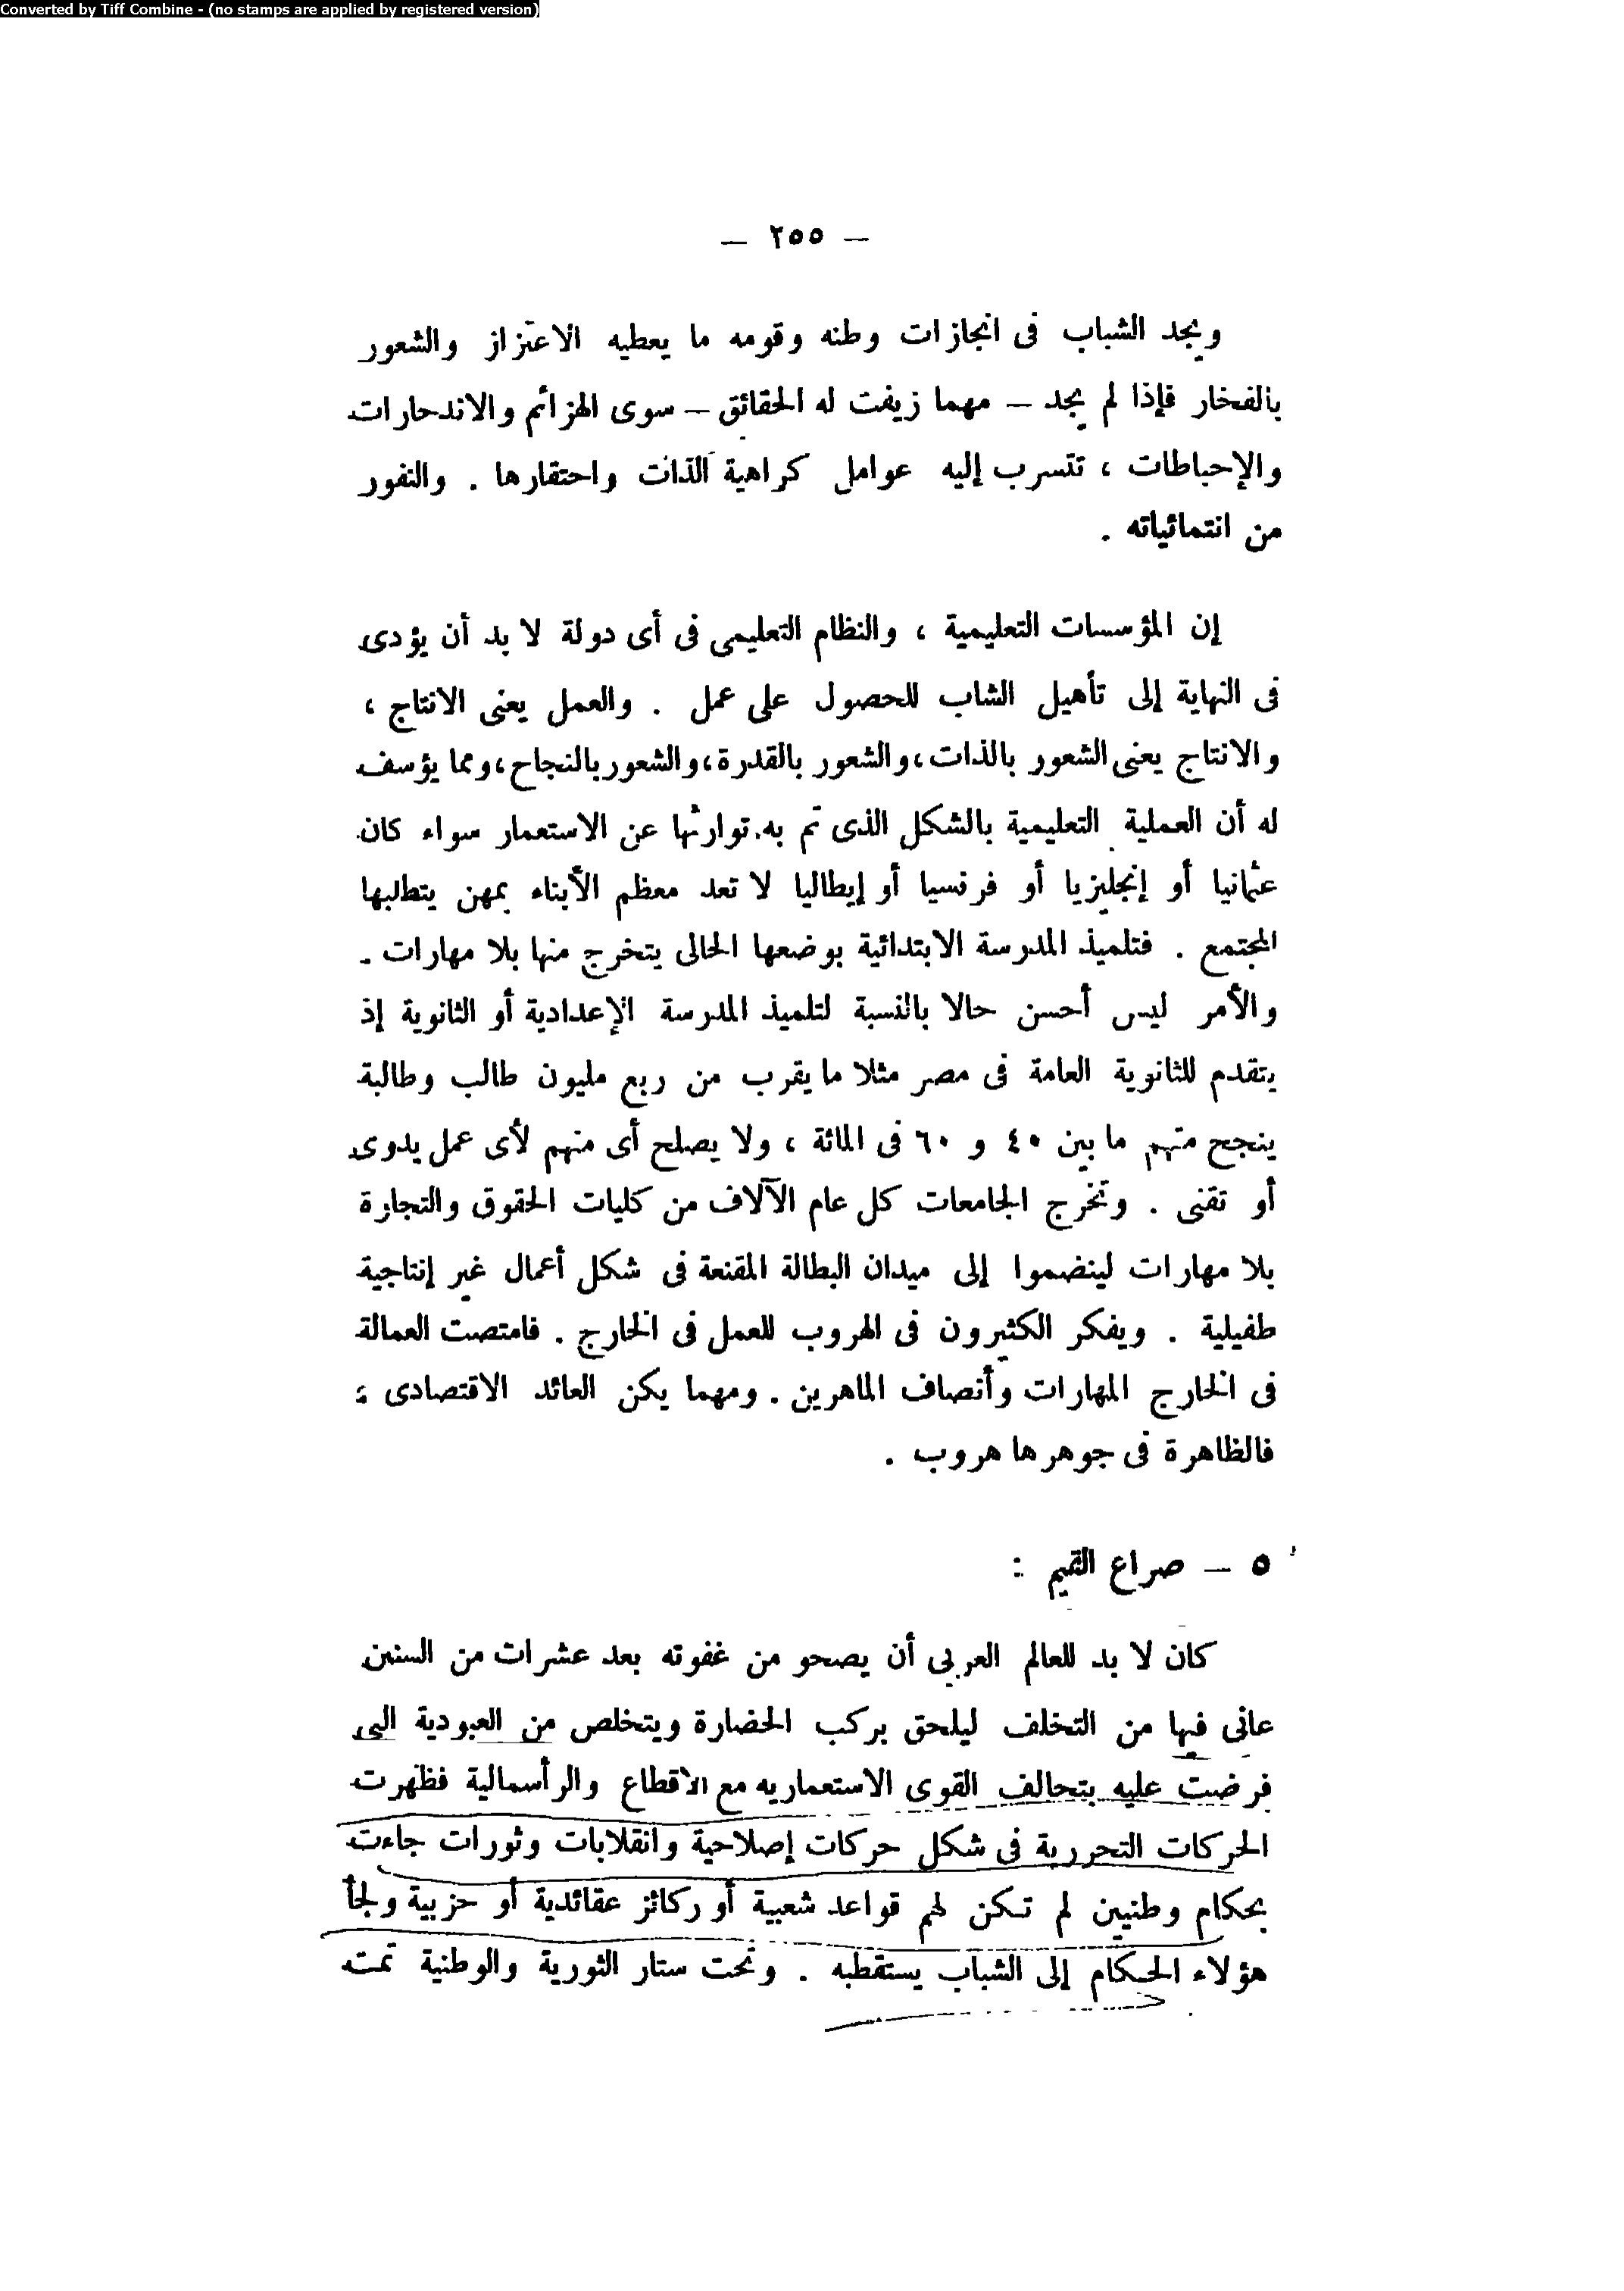 Converted by Tiff Combine - (no stamps are applied by registered version)
— ٢٥٥ —
ويجد الشباب فى انجازات وطنه وقومه ما يعطيه الاعتزاز والشعور
بالفخار فإذا لم يجد — مهما زيفت له الحقائق — سوى الهزائم والاندحارات
والإحباطات ، تتسرب إليه عوامل كراهية الذات واحتقارها . والنفور
من انتمائياته .
إن المؤسسات التعليمية ، والنظام التعليمى فى أى دولة لا بد أن يؤدى
فى النهاية إلى تأهيل الشاب للحصول على عمل . والعمل يعنى الانتاج ،
والانتاج يعنى الشعور بالذات ، والشعور بالقدرة ، والشعور بالنجاح ، ومما يؤسف
له أن العملية التعليمية بالشكل الذى تم به توارثها عن الاستعمار سواء كان
عثمانيا أو إنجليزيا أو فرنسيا أو إيطاليا لا تعد معظم الأبناء بمهن يتطلبها
المجتمع . فتلميذ المدرسة الابتدائية بوضعها الحالى يتخرج منها بلا مهارات .
والأمر ليس أحسن حالا بالنسبة لتلميذ المدرسة الإعدادية أو الثانوية إذ
يتقدم للثانوية العامة فى مصر مثلا ما يقرب من ربع مليون طالب وطالبة
ينجح منهم ما بين ٤٠ و ٦٠ فى المائة ، ولا يصلح أى منهم لأى عمل يدوى
أو تقنى . وتخرج الجامعات كل عام الآلاف من كليات الحقوق والتجارة
بلا مهارات لينضموا إلى ميدان البطالة المقنعة فى شكل أعمال غير إنتاجية
طفيلية . ويفكر الكثيرون فى الهروب للعمل فى الخارج . فامتصت العمالة
فى الخارج المهارات وأنصاف الماهرين . ومهما يكن العائد الاقتصادى :
فالظاهرة فى جوهرها هروب .
٥ — صراع القيم :
كان لا بد للعالم العربى أن يصحو من غفوته بعد عشرات من السنين
عانى فيها من التخلف ليلحق بركب الحضارة ويتخلص من العبودية التى
فرضت عليه بتحالف القوى الاستعماريه مع الاقطاع والرأسمالية فظهرت
الحركات التحررية فى شكل حركات إصلاحية وانقلابات وثورات جاءت
بحكام وطنيين لم تكن لهم قواعد شعبية أو ركائز عقائدية أو حزبية ولجأ
هؤلاء الحكام إلى الشباب يستقطبه . وتحت ستار الثورية والوطنية تمت